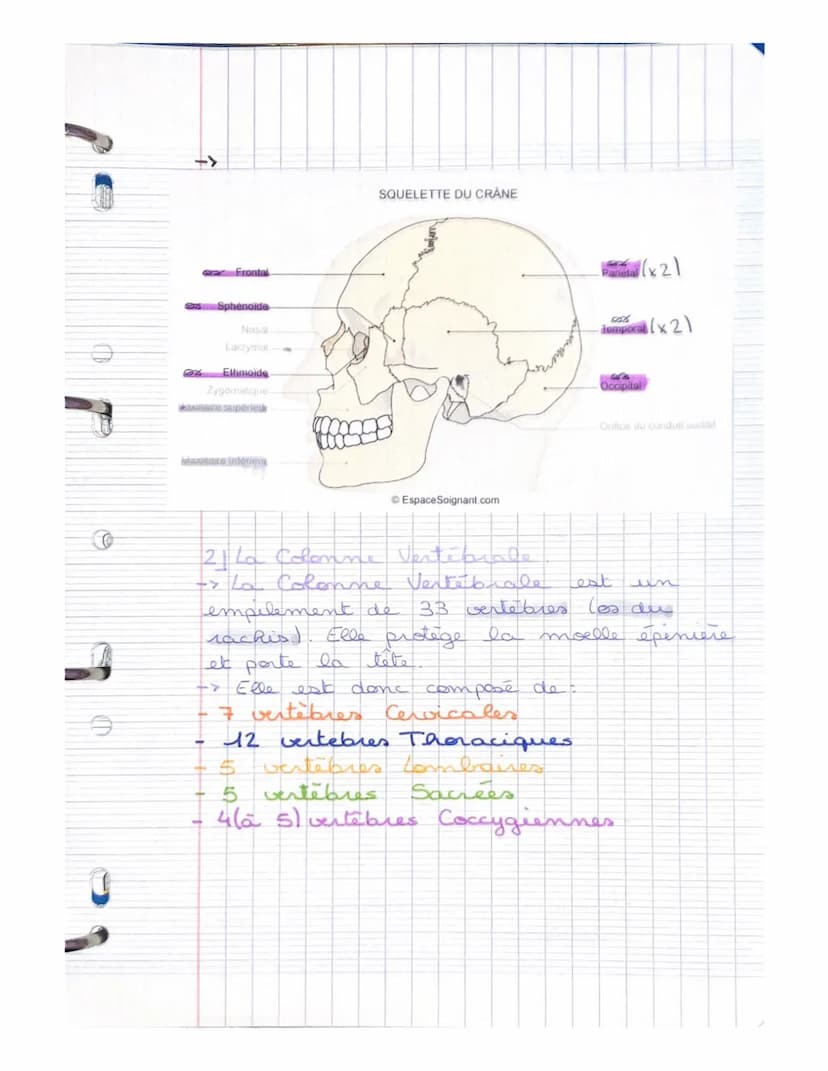 ->
SQUELETTE DU CRÂNE
os Frontal
os Sphénoïde
Nasal
Lacrymal
os Ethmoïde
Zygomatique
Maxillaire supérieur
Maxillaire inférieur
os Pariétal (x2)
os Temporal (x2)
os Occipital
Orifice du conduit auditif
© EspaceSoignant.com
2) La Colonne Vertébrale.
-> La Colonne Vertébrale est un
empilement de 33 vertèbres (os du
rachis). Elle protège la moelle épinière
et porte la tête.
-> Elle est donc composé de :
- 7 vertèbres Cervicales
- 12 vertebres Thoraciques
- 5 vertèbres Lombaires
- 5 vertèbres Sacrées
- 4(à 5) vertèbres Coccygiennes